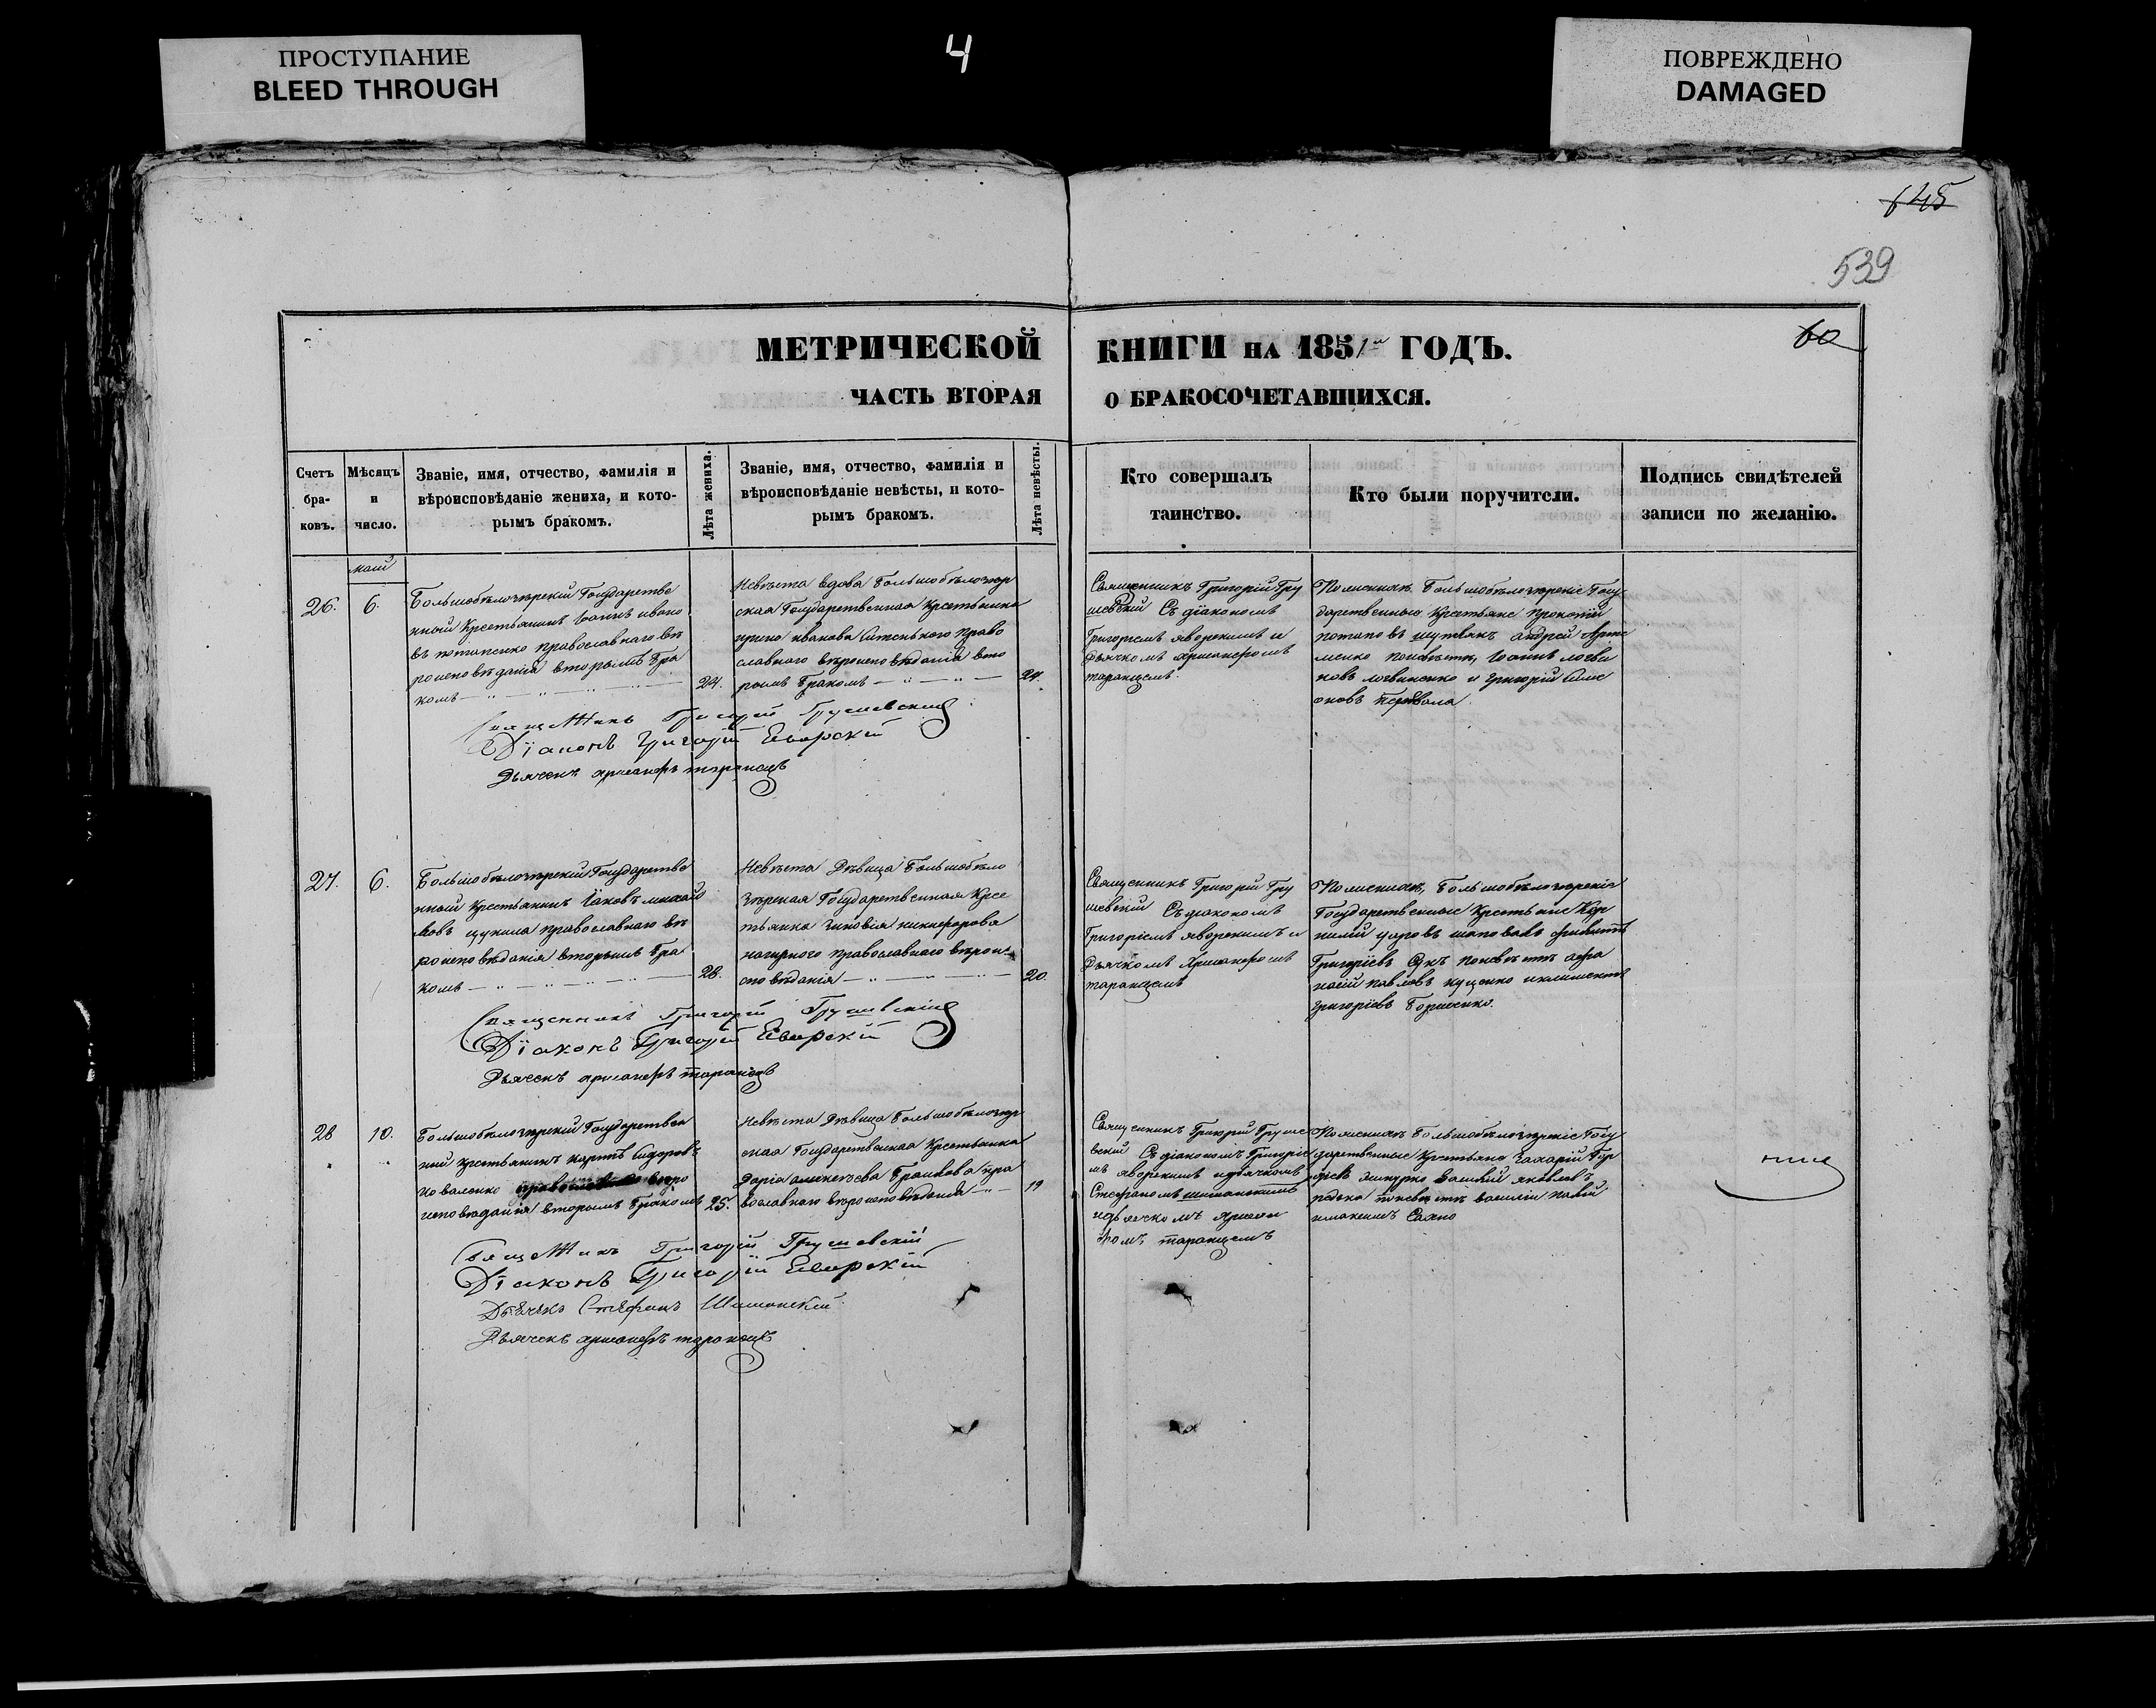 ПРОСТУПАНИЕ
BLEED THROUGH
4
ПОВРЕЖДЕНО
DAMAGED
645
539
60
МЕТРИЧЕСКОЙ КНИГИ НА 1851 ГОДЪ.
ЧАСТЬ ВТОРАЯ О БРАКОСОЧЕТАВШИХСЯ.
Счетъ бра-ковъ.
Мѣсяцъ и число.
Званіе, имя, отчество, фамилія и
вѣроисповѣданіе жениха, и кото-
рымъ бракомъ.
Лѣта жениха.
Званіе, имя, отчество, фамилія и
вѣроисповѣданіе невѣсты, и кото-
рымъ бракомъ.
Лѣта невѣсты.
Кто совершалъ
таинство.
Кто были поручители.
Подпись свидѣтелей
записи по желанію.
маій
26.
6.
Большобѣлозерскій Государстве
нный Крестьянинъ Іоаннъ ивано
въ потапенко православнаго вѣ
роисповѣданія вторымъ бра
комъ
24.
Невѣста вдова Большобѣлозер
ская Государственная Крестьянка
ирина иванова право
славнаго вѣроисповѣданія вто
рымъ бракомъ
24.
Священникъ Григорій Гру
шевскій Съ діакономъ
Григоріемъ яворскимъ и
дьячкомъ
таранцемъ
Большобѣлозерскіе Госу
дарственные Крестьяне прокопій
потаповъ андрей
Іоаннъ логви
новъ логвиненко и григорій
Священникъ Григорій Грушевскій
Діаконъ Григорій Еворскій
Дьячекъ таранецъ
27.
6.
Большобѣлозерскій Государстве
нный Крестьянинъ Іаковъ михай
ловъ цукила православнаго вѣ
роисповѣданія вторымъ бра
комъ
28.
Невѣста Дѣвица Большобѣло
зерская Государственная Крес
тьянка Зиновія никифорова
нагирного православнаго вѣрои
сповѣданія
20.
Священникъ Григорій Гру
шевскій Съ діакономъ
Григоріемъ яворскимъ и
Дьячкомъ
таранцемъ
Большобѣлозерскіе
Государственные Крестьяне Кор
нилій шаповалъ филиппъ
Григоріевъ афа
насій павловъ куценко
григоріевъ
Священникъ Григорій Грушевскій
Діаконъ Григорій Еворскій
Дьячекъ таранецъ
28
10.
Большобѣлозерскій Государствен
ный Крестьянинъ карпъ Сидоровъ
коваленко вѣро
исповѣданія вторымъ бракомъ
25.
Невѣста Дѣвица Большобѣлозер
ская Государственная Крестьянка
Дарія алексѣева пра
вославнаго вѣроисповѣданія
19
Священникъ Григорій Груше
вскій Съ діакономъ Григоріе
мъ яворскимъ и дьячкомъ
Стефаномъ шиманскимъ
и дьячкомъ
таранцемъ
Большобѣлозерскіе Госу
дарственные Крестьяне Захарій
Василій яковлевъ
василій
Священникъ Григорій Грушевскій
Діаконъ Григорій Еворскій
Дьячекъ Стефанъ Шиманскій
Дьячекъ таранецъ